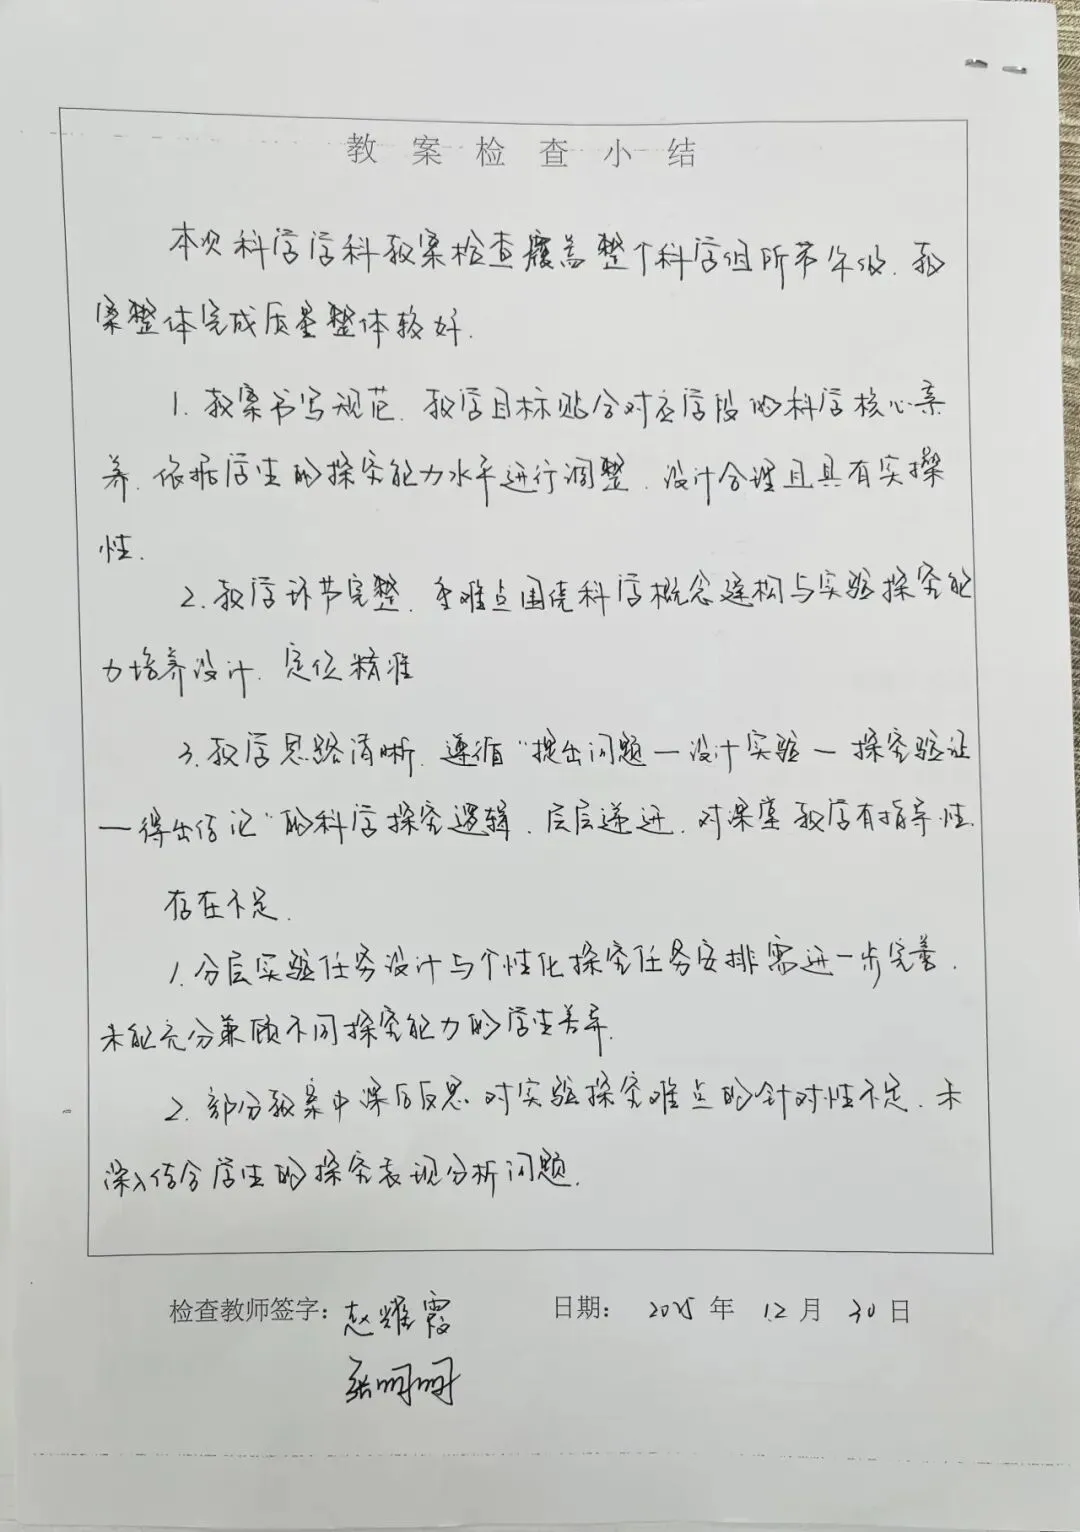 教案检查小结
本次科学学科教案检查覆盖整个科学组所带年级.教
案整体完成质量整体较好.
1.教案书写规范.教学目标贴合对应学段的科学核心素
养.依据学生的探究能力水平进行调整.设计合理且具有实操
性.
2.教学环节完整.重难点围绕科学概念建构与实验探究能
力培养设计.定位精准
3.教学思路清晰.遵循“提出问题—设计实验—探究验证
—得出结论”的科学探究逻辑.层层递进.对课堂教学有指导性.
存在不足.
1.分层实验任务设计与个性化探究任务安排需进一步完善.
未能充分兼顾不同探究能力的学生差异.
2.部分教案中课后反思对实验探究难点的针对性不足.未
深入结合学生的探究表现分析问题.
检查教师签字:赵耀霞 日期: 2025年12月30日
张明明